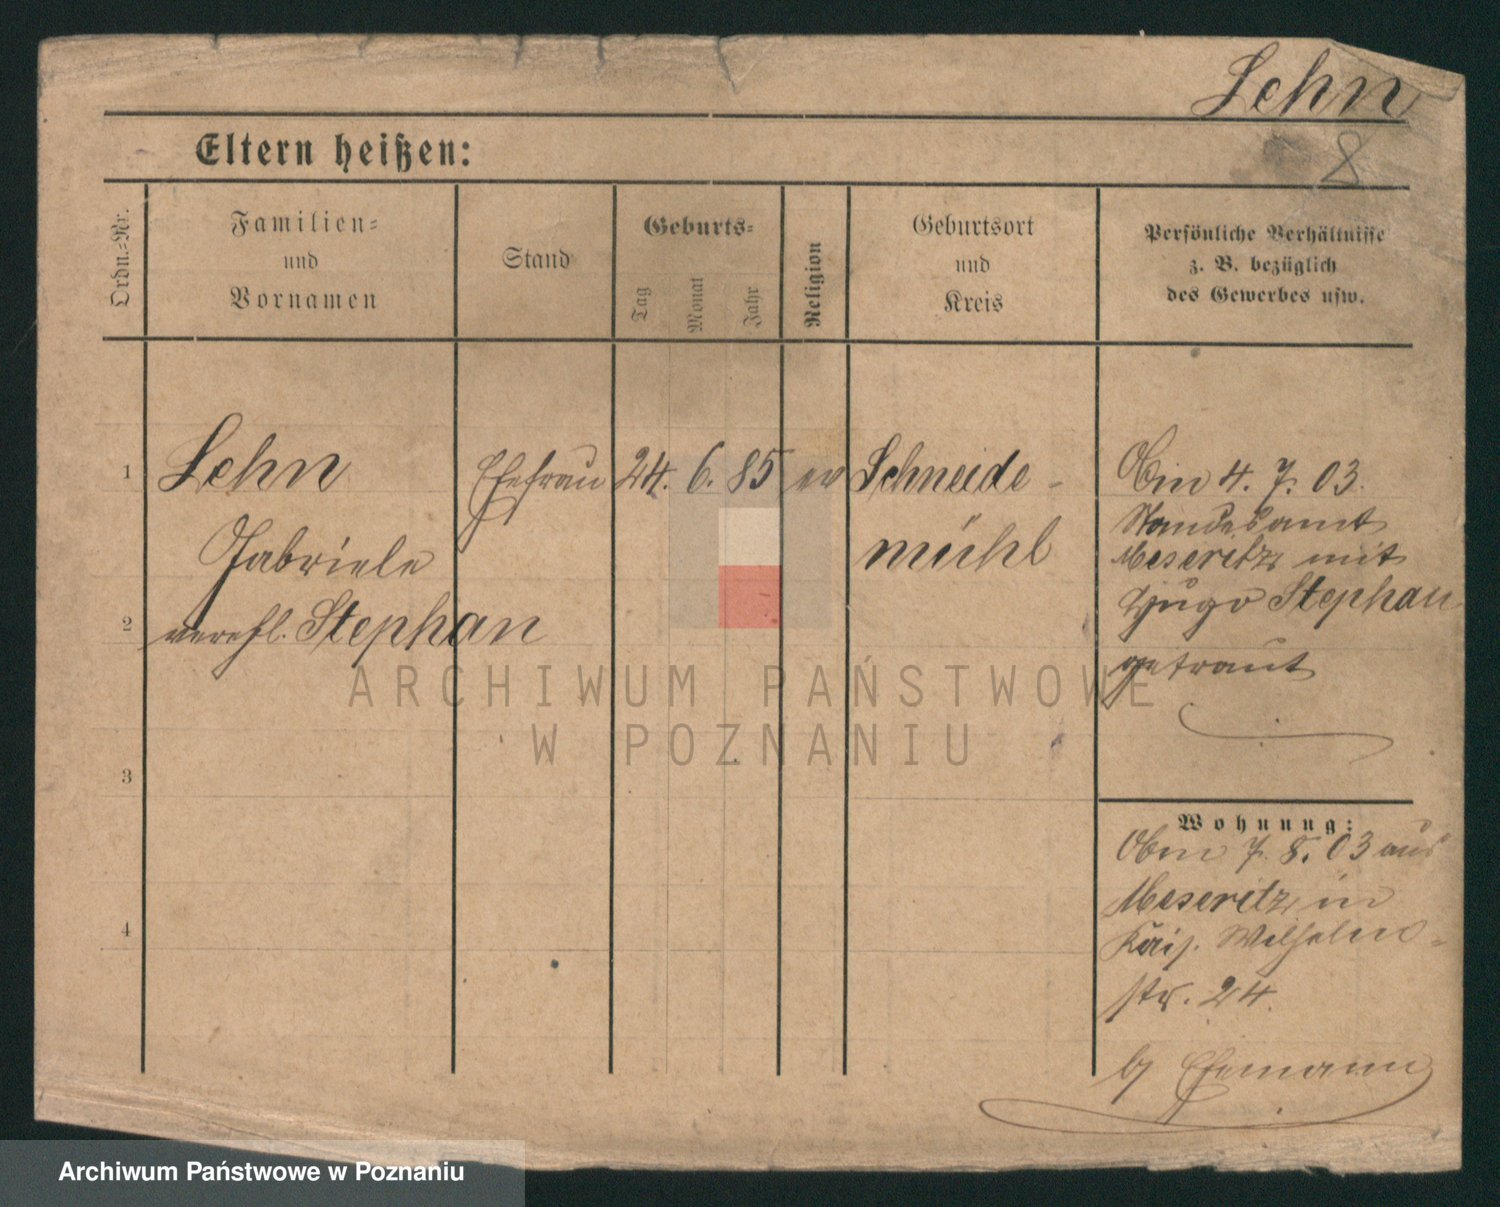 Lehn
8
Eltern heißen:
Ordn.-Nr.
Familien-
und
Vornamen
Stand
Geburts-
Tag
Monat
Jahr
Religion
Geburtsort
und
Kreis
Persönliche Verhältnisse
z. B. bezüglich
des Gewerbes usw.
1
Lehn Ehefrau 24. 6. 85 ev Schneide-
Gabriele mühl
2
verehl. Stephan
3
4
4. 7. 03.
Standesamt
Meseritz mit
Hugo Stephan
getraut
Wohnung:
7. 8. 03 aus
Meseritz in
Kais. Wilhelm-
str. 24.
b/ Ehemann
ARCHIWUM PAŃSTWOWE
W POZNANIU
Archiwum Państwowe w Poznaniu